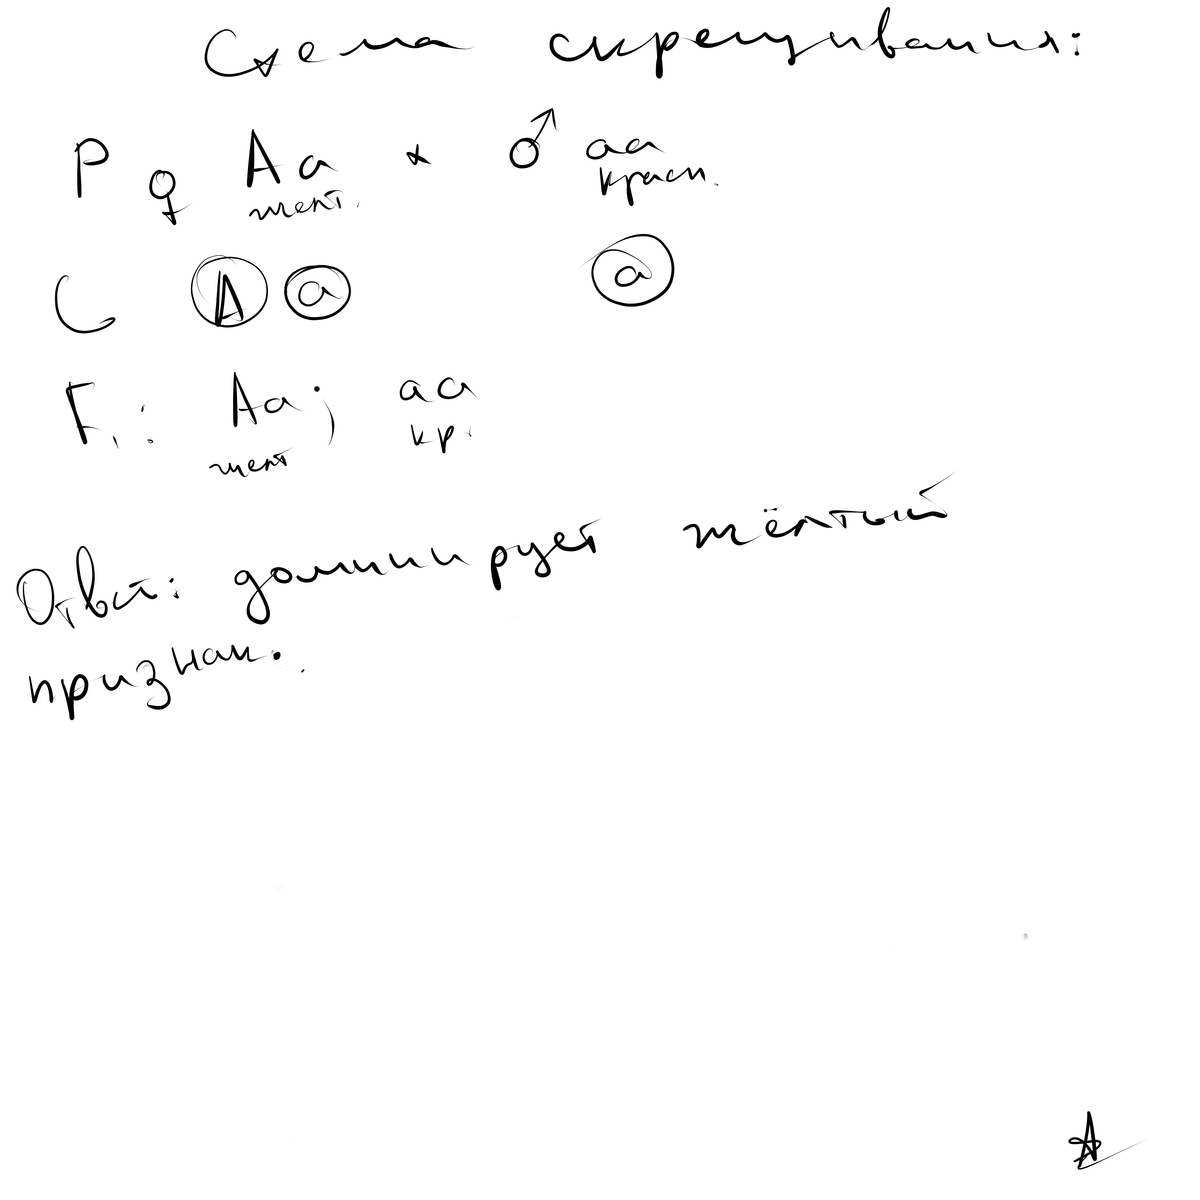 Схема скрещивания:
P ♀ Aa × ♂ aa
жёлт. красн.
G A a a
F1: Aa; aa
жёлт кр.
Ответ: доминирует жёлтый
признак.